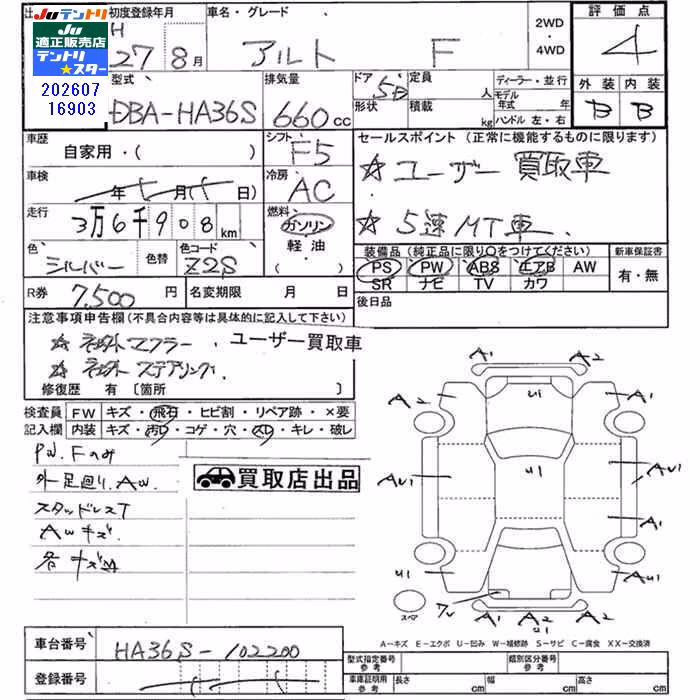 Ju テントリ
適正販売店
テントリ
★スター
202607
16903
初度登録年月
H
27 8月
車名・グレード
アルト F
2WD
・
4WD
評価点
4
外装 内装
B B
型式
DBA-HA36S
排気量
660cc
ドア 5D
形状
定員
人
積載
kg
ディーラー・並行
モデル
年式 年
ハンドル 左・右
車歴
自家用・( )
シフト
F5
車検
年 月( 日)
冷房
AC
走行
3万6千908km
燃料
ガソリン
軽油
( )
色
シルバー
色替
色コード
Z2S
R券 7,500円
名変期限 月 日
セールスポイント(正常に機能するものに限ります)
☆ユーザー買取車
☆5速MT車.
装備品(純正品に限り○をつけてください)
PS PW ABS エアB AW
SR ナビ TV カワ
新車保証書
有・無
後日品
注意事項申告欄(不具合内容等は具体的に記入して下さい)
☆社外マフラー. ユーザー買取車
☆社外ステアリング.
修復歴 有〔箇所 〕
検査員
記入欄
FW キズ・飛石・ヒビ割・リペア跡・×要
内装 キズ・汚レ・コゲ・穴・スレ・キレ・破レ
PW.Fのみ
外足廻り.AW.
スタッドレスT
AWキズ
各キズ凹
買取店出品
A1 A2
A2 U1 A2
AU1 U1 AU1
A1
U1 AU1
ワレ
スペア
A1 A2 A2
U1
A-キズ E-エクボ U-凹み W-補修跡 S-サビ C-腐食 XX-交換済
車台番号
HA36S-102200
登録番号
型式指定番号
参考
類別区分番号
参考
車庫証明用
参考
長さ cm 幅 cm 高さ cm